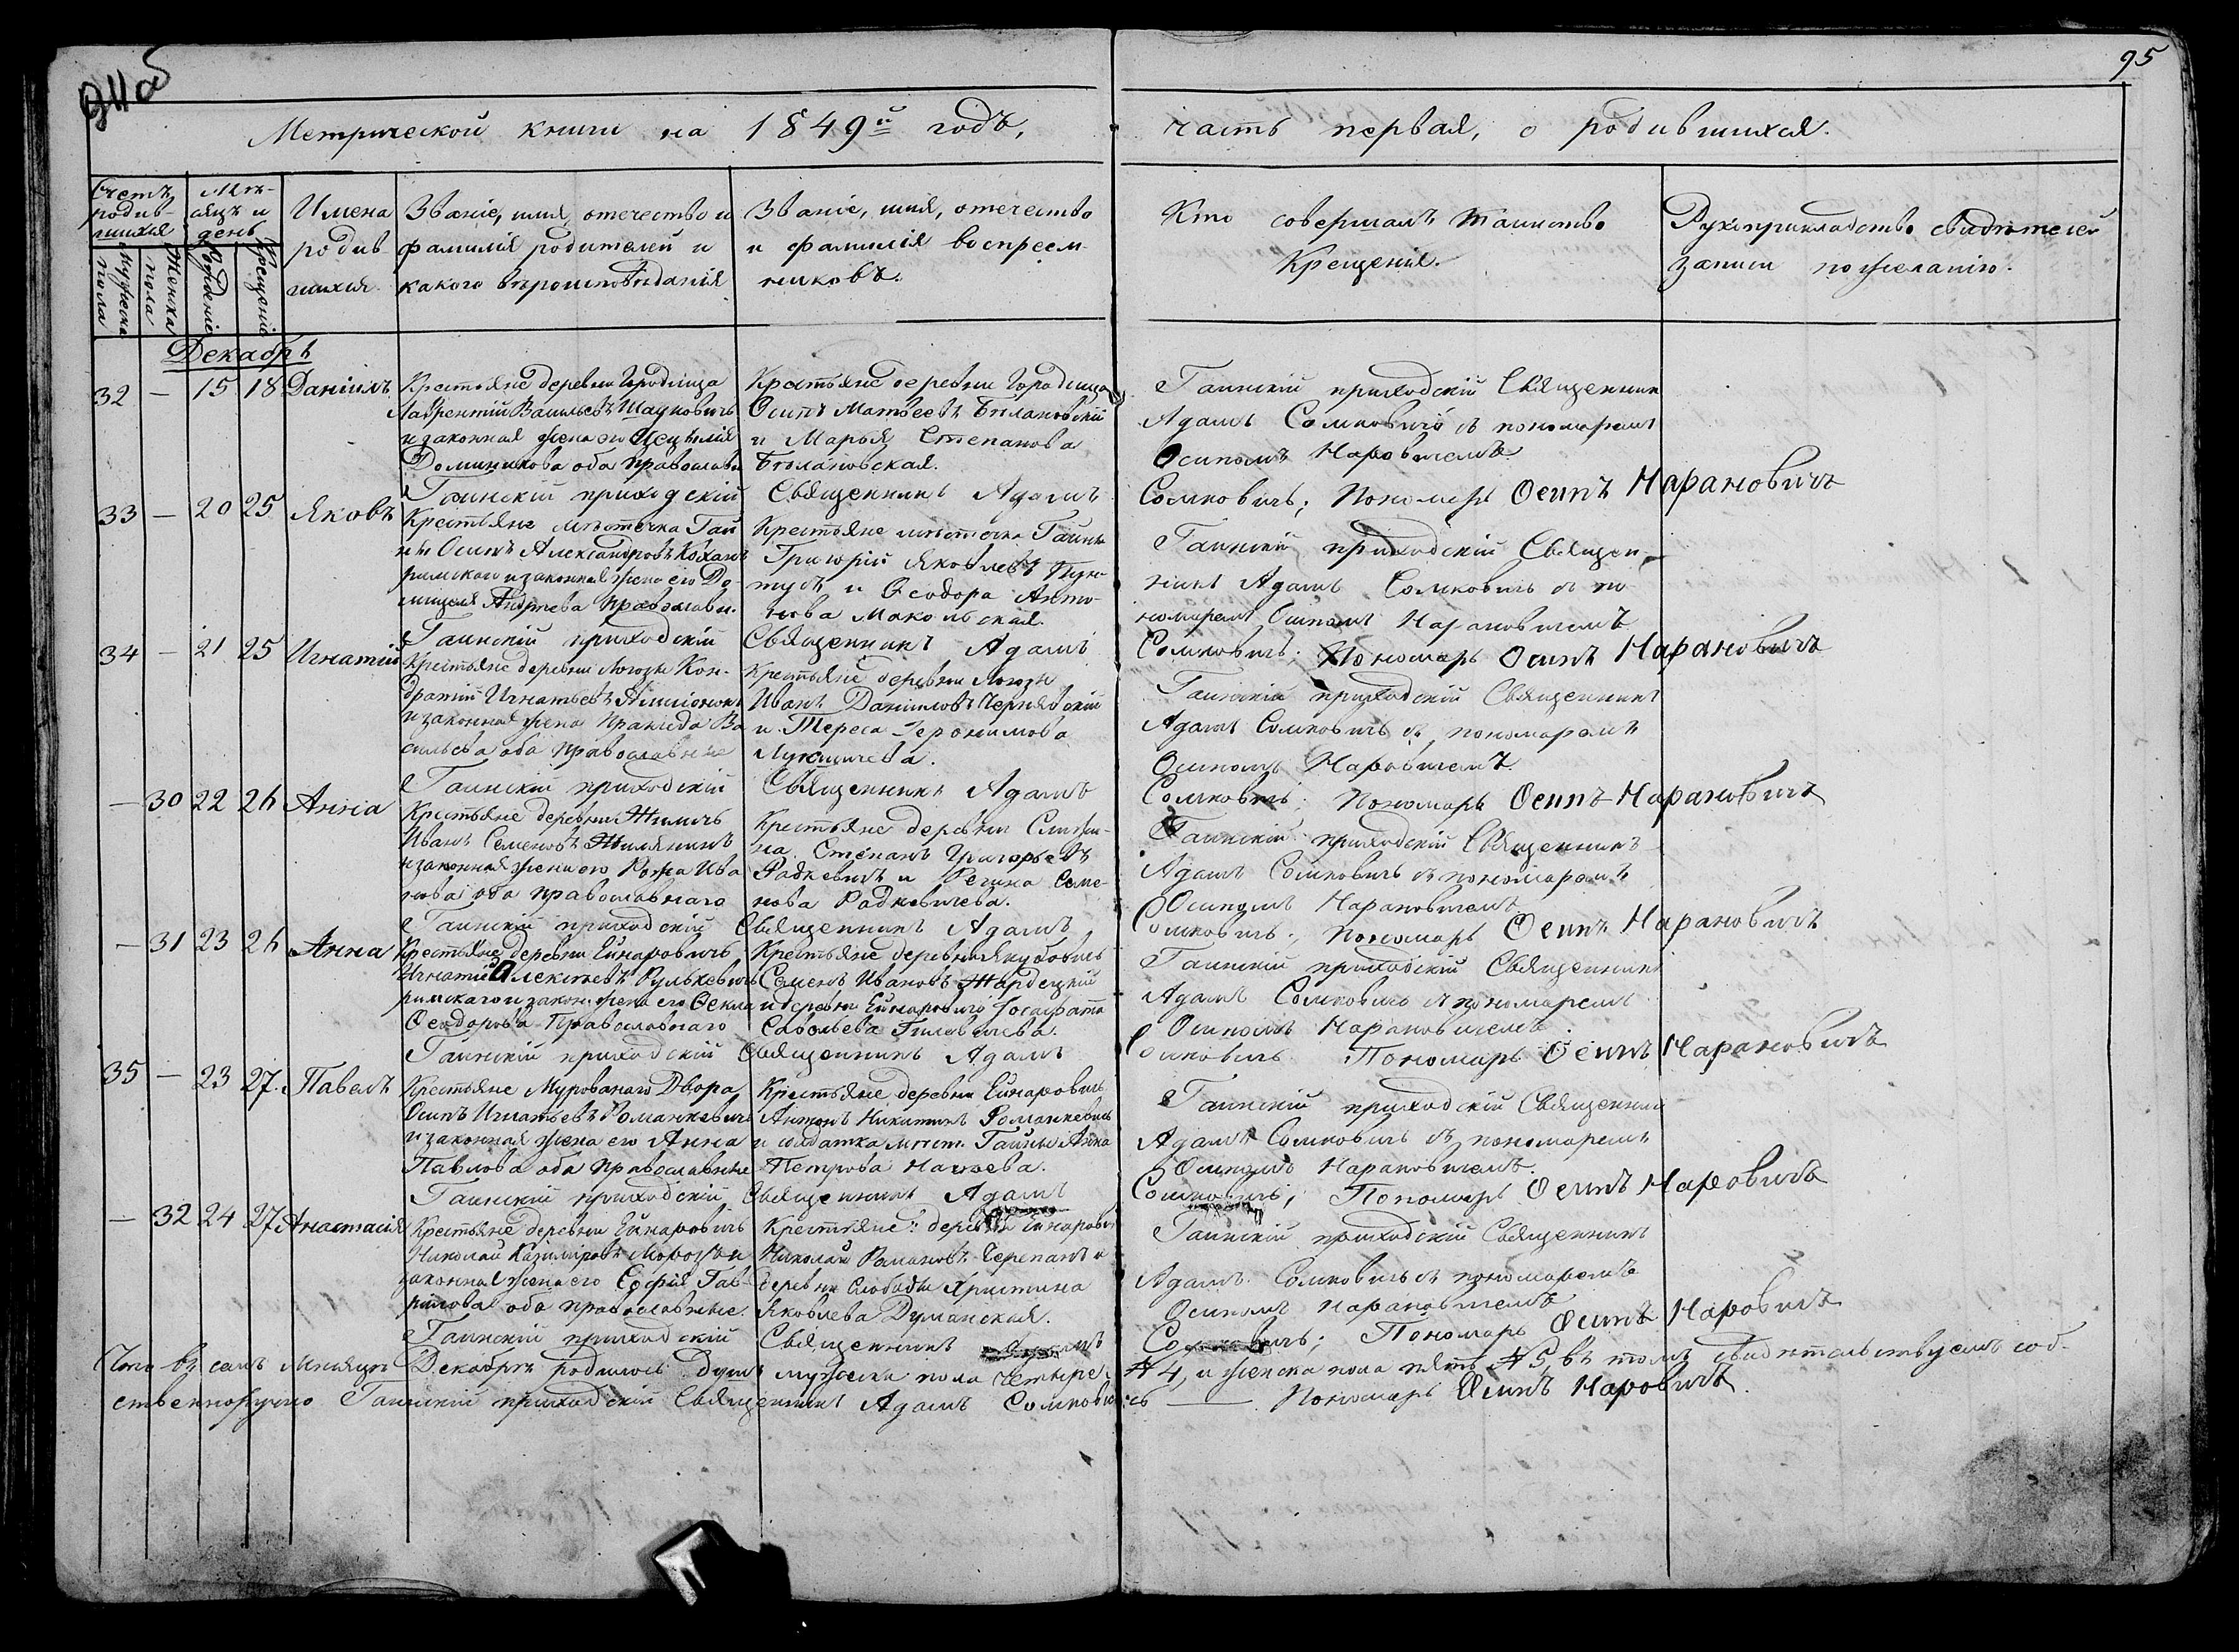 94об
95
Метрической книги на 1849й годъ,
часть первая, о родившихся.
Счетъ родив-
шихся
Мужеска пола
Женска пола
Мѣ-
сяцъ и
день
Рожденіе
Крещеніе
Имена
родив-
шихся
Званіе, имя, отечество и
фамилія родителей и
какого вѣроисповѣданія
Званіе, имя, отечество
и фамилія воспреем-
никовъ.
Кто совершалъ таинство
Крещенія.
Рукоприкладство свидѣтелей
записи по желанію.
Декабрь
32 — 15 18 Даніилъ
Крестьяне деревни Городища
Лаврентій Васильевъ
и законная жена его Цецылія
Доминикова оба православн
Крестьяне деревни Городища
Осипъ Матвеевъ Бѣлановскій
и Марья Степанова
Бѣлановская.
Гаинскій приходскій Священник
Адамъ Сомковичъ съ пономаремъ
Осипомъ Наровичемъ.
Гаинскій приходскій Священникъ Адамъ Сомковичъ; Пономарь Осипъ Нарановичъ
33 — 20 25 Яковъ
Крестьяне мѣстечка Гай
ны Осипъ Александровъ
римскаго и законная жена его До
мицеля Андреева православн.
Крестьяне мѣстечка Гайны
Григорій Яковлевъ
и Ѳеодора Анто-
нова
Гаинскій приходскій Священ-
никъ Адамъ Сомковичъ съ по
номаремъ Осипомъ Нарановичемъ
Гаинскій приходскій Священникъ Адамъ Сомковичъ. Пономарь Осипъ Нарановичъ
34 — 21 25 Игнатій
Крестьяне деревни Логозы Кон-
дратій Игнатьевъ
и законная жена Праксида Ва
сильева оба православные
Крестьяне деревни Логозы
Иванъ Даніиловъ Чернявскій
и Тереса Іеронимова
Гаинскій приходскій Священникъ
Адамъ Сомковичъ съ пономаремъ
Осипомъ Наровичемъ.
Гаинскій приходскій Священникъ Адамъ Сомковичъ. Пономарь Осипъ Нарановичъ
— 30 22 26 Анна
Крестьяне деревни Жиличъ
Иванъ Семеновъ Жилянинъ
и законная жена его Рожа Ива
нова оба православнаго
Крестьяне деревни
Степанъ Григорьевъ
Радкевичъ и Регина Семе-
нова Радкевичева.
Гаинскій приходскій Священникъ
Адамъ Сомковичъ съ пономаремъ
Осипомъ Нарановичемъ
Гаинскій приходскій Священникъ Адамъ Сомковичъ. Пономарь Осипъ Нарановичъ
— 31 23 26 Анна
Крестьяне деревни Ейнаровичъ
Игнатій Алексѣевъ Рулькевичъ
римскаго и закон. жена его Ѳекла
Ѳеодорова Православнаго
Крестьяне деревни Якубовичъ
Семенъ Ивановъ Жардецкій
и деревни Ейнаровичъ Іосафата
Савельева
Гаинскій приходскій Священникъ
Адамъ Сомковичъ съ пономаремъ
Осипомъ Нарановичемъ
Гаинскій приходскій Священникъ Адамъ Сомковичъ. Пономарь Осипъ Нарановичъ
35 — 23 27 Павелъ
Крестьяне Мурованаго Двора
Осипъ Игнатьевъ Романкевичъ
и законная жена его Анна
Павлова оба православные
Крестьяне деревни Ейнаровичъ
Антонъ Никитинъ Романкевичъ
и солдатка мѣст. Гайны Анна
Петрова
Гаинскій приходскій Священник
Адамъ Сомковичъ съ пономаремъ
Осипомъ Нарановичемъ.
Гаинскій приходскій Священникъ Адамъ Сомковичъ; Пономарь Осипъ Наровичъ
— 32 24 27 Анастасія
Крестьяне деревни Ейнаровичъ
Николай Казиміровъ Морозъ и
законная жена его Софія Гав-
рилова оба православные.
Крестьяне: деревни Ейнарович
Николай Романовъ Черепанъ и
деревни Слободы Христина
Яковлева Думанская.
Гаинскій приходскій Священникъ
Адамъ Сомковичъ съ пономаремъ
Осипомъ Нарановичемъ
Гаинскій приходскій Священникъ Адамъ Сомковичъ; Пономарь Осипъ Наровичъ
Что въ семъ Мѣсяцѣ Декабрѣ родилось душъ мужеска пола четыре, № 4, и женска пола пять № 5, въ томъ свидѣтельствуемъ соб-
ственноручно Гаинскій приходскій Священникъ Адамъ Сомковичъ — Пономарь Осипъ Наровичъ.